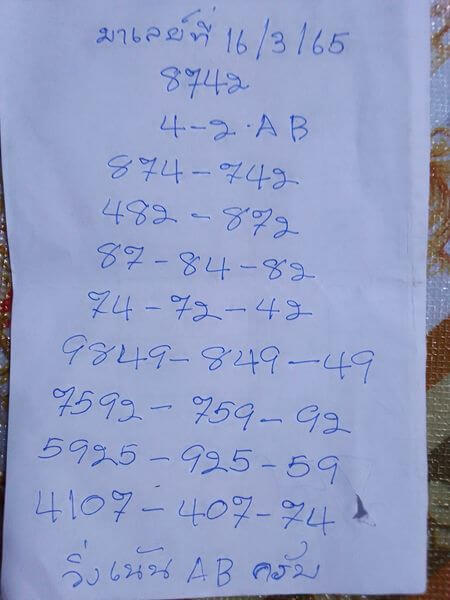 มาเลย์ที่ 16/3/65
8742
4-2.AB
874-742
482-872
87-84-82
74-72-42
9849-849-49
7592-759-92
5925-925-59
4107-407-74
วิ่งเน้น AB ครับ